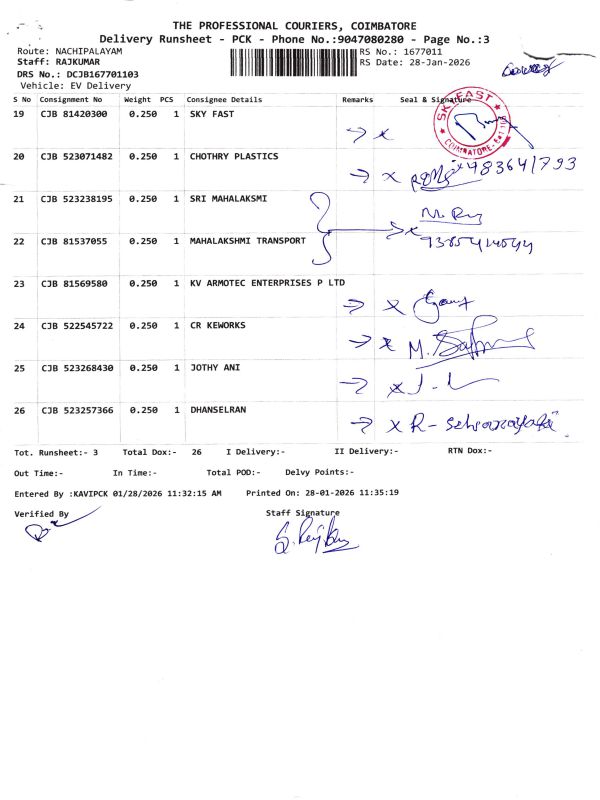 THE PROFESSIONAL COURIERS, COIMBATORE
Delivery Runsheet - PCK - Phone No.:9047080280 - Page No.:3
Route: NACHIPALAYAM
RS No.: 1677011
Staff: RAJKUMAR
RS Date: 28-Jan-2026
DRS No.: DCJB167701103
Vehicle: EV Delivery
S No Consignment No Weight PCS Consignee Details Remarks Seal & Signature
19 CJB 81420300 0.250 1 SKY FAST
SKY FAST
COIMBATORE
20 CJB 523071482 0.250 1 CHOTHRY PLASTICS
21 CJB 523238195 0.250 1 SRI MAHALAKSMI
22 CJB 81537055 0.250 1 MAHALAKSHMI TRANSPORT
23 CJB 81569580 0.250 1 KV ARMOTEC ENTERPRISES P LTD
24 CJB 522545722 0.250 1 CR KEWORKS
25 CJB 523268430 0.250 1 JOTHY ANI
26 CJB 523257366 0.250 1 DHANSELRAN
Tot. Runsheet:- 3 Total Dox:- 26 I Delivery:- II Delivery:- RTN Dox:-
Out Time:- In Time:- Total POD:- Delvy Points:-
Entered By :KAVIPCK 01/28/2026 11:32:15 AM Printed On: 28-01-2026 11:35:19
Verified By Staff Signature